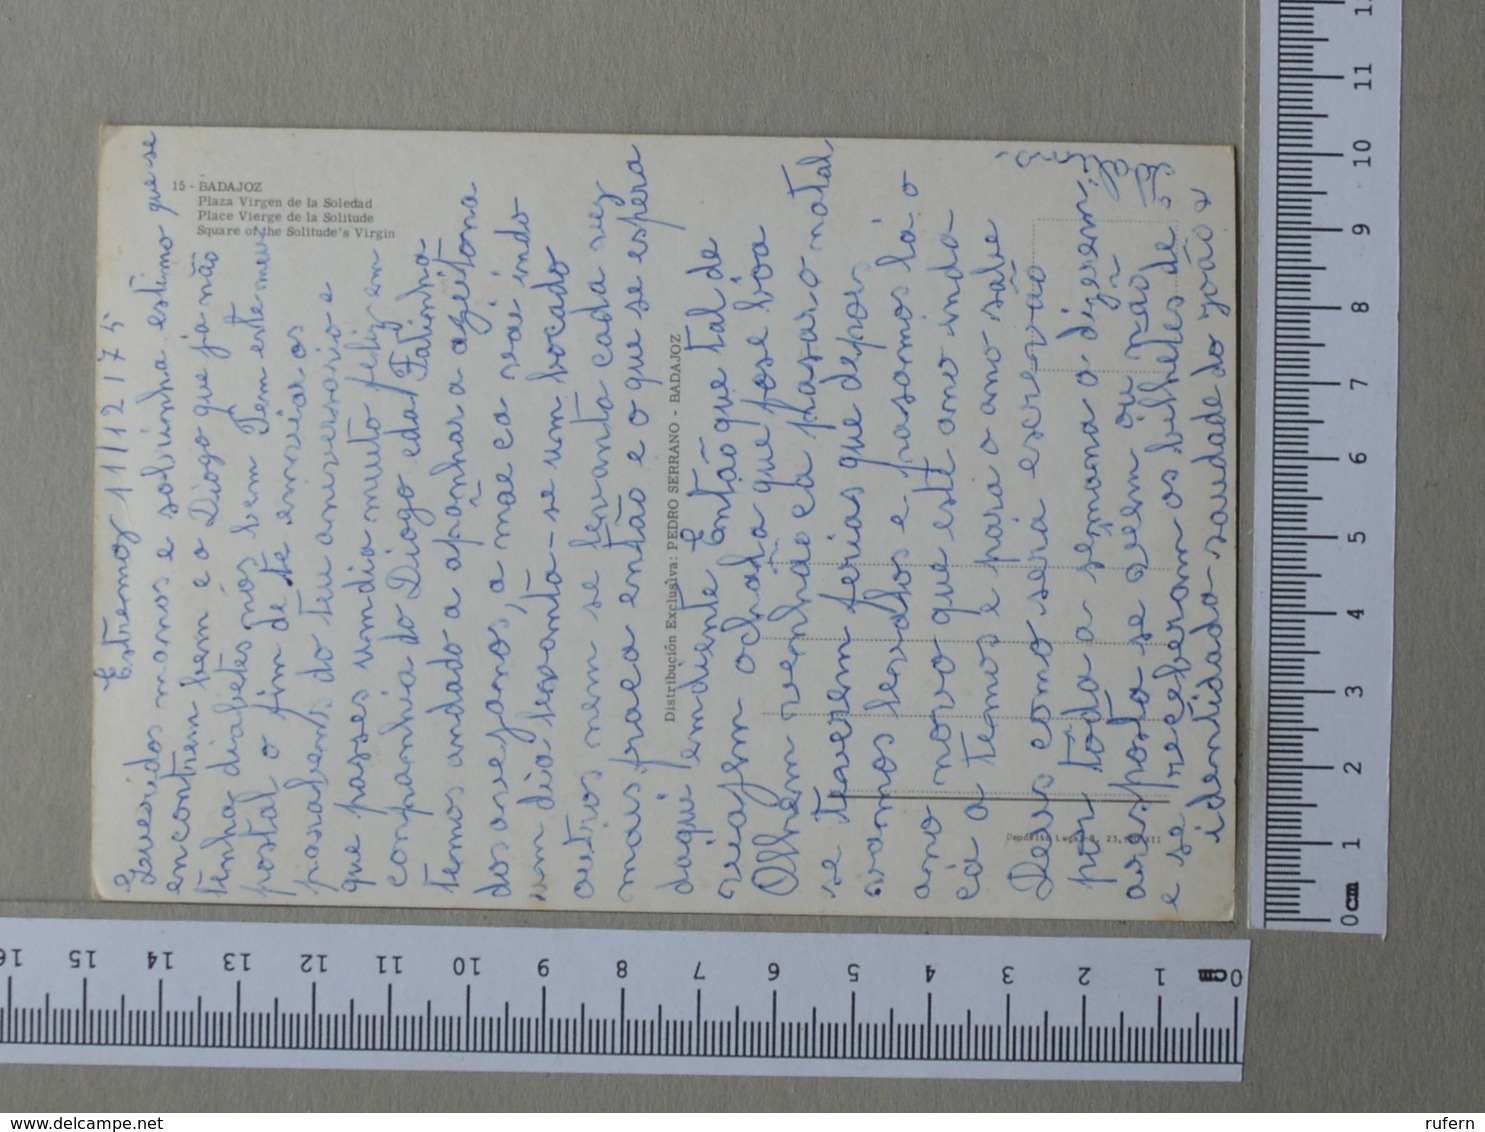 15 - BADAJOZ
Plaza Virgen de la Soledad
Place Vierge de la Solitude
Square of the Solitude's Virgin
Estremoz 11/12/75
Queridos manos e sobrinha estimo que se
encontrem bem e o Diogo que ja não
tenha diabetes nós bem Tem este meu
postal o fim de te enviar os
parabens do teu aniversario e
que passes um dia muito feliz em
companhia do Diogo e da Fatinha
temos andado a apanhar a azeitona
dos a mae ca vai indo
um dia levanta-se um bocado
outros nem se levanta cada vez
mais fraca então e o que se espera
daqui em diante Então que tal de
viajem o chata que fose bôa
Olhem venhão cá pasar o natal
se tiverem ferias que depois
vamos levalos e pasamos lá o
ano novo que este ano inda
cá a temos e para o ano sabe
Deus como será escrevão
por toda a semana a dizerem
a resposta se veem ou não
e se receberam os bilhetes de
identidade saudade do João e
Distribución Exclusiva: PEDRO SERRANO - BADAJOZ
Depósito Legal B. 23.
0 cm 1 2 3 4 5 6 7 8 9 10 11
0 cm 1 2 3 4 5 6 7 8 9 10 11 12 13 14 15 16
rufern